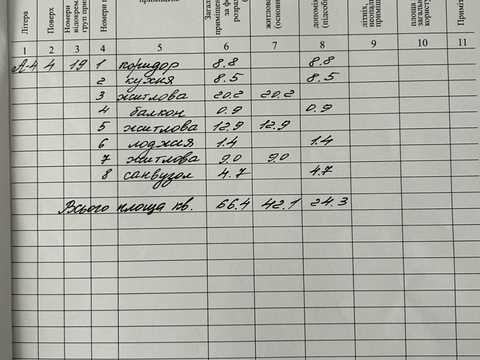 Літера
Поверх
Номери
Загаль
приміщен
за фо
розра
житлово
(основн
допомі
(підсобн
площа
загаль
корист
Приміт
1 2 3 4 5 6 7 8 9 10 11
А-4 4 19 1 коридор 8.8 8.8
2 кухня 8.5 8.5
3 житлова 20.2 20.2
4 балкон 0.9 0.9
5 житлова 12.9 12.9
6 лоджия 1.4 1.4
7 житлова 9.0 9.0
8 санвузол 4.7 4.7
Всього площа кв. 66.4 42.1 24.3